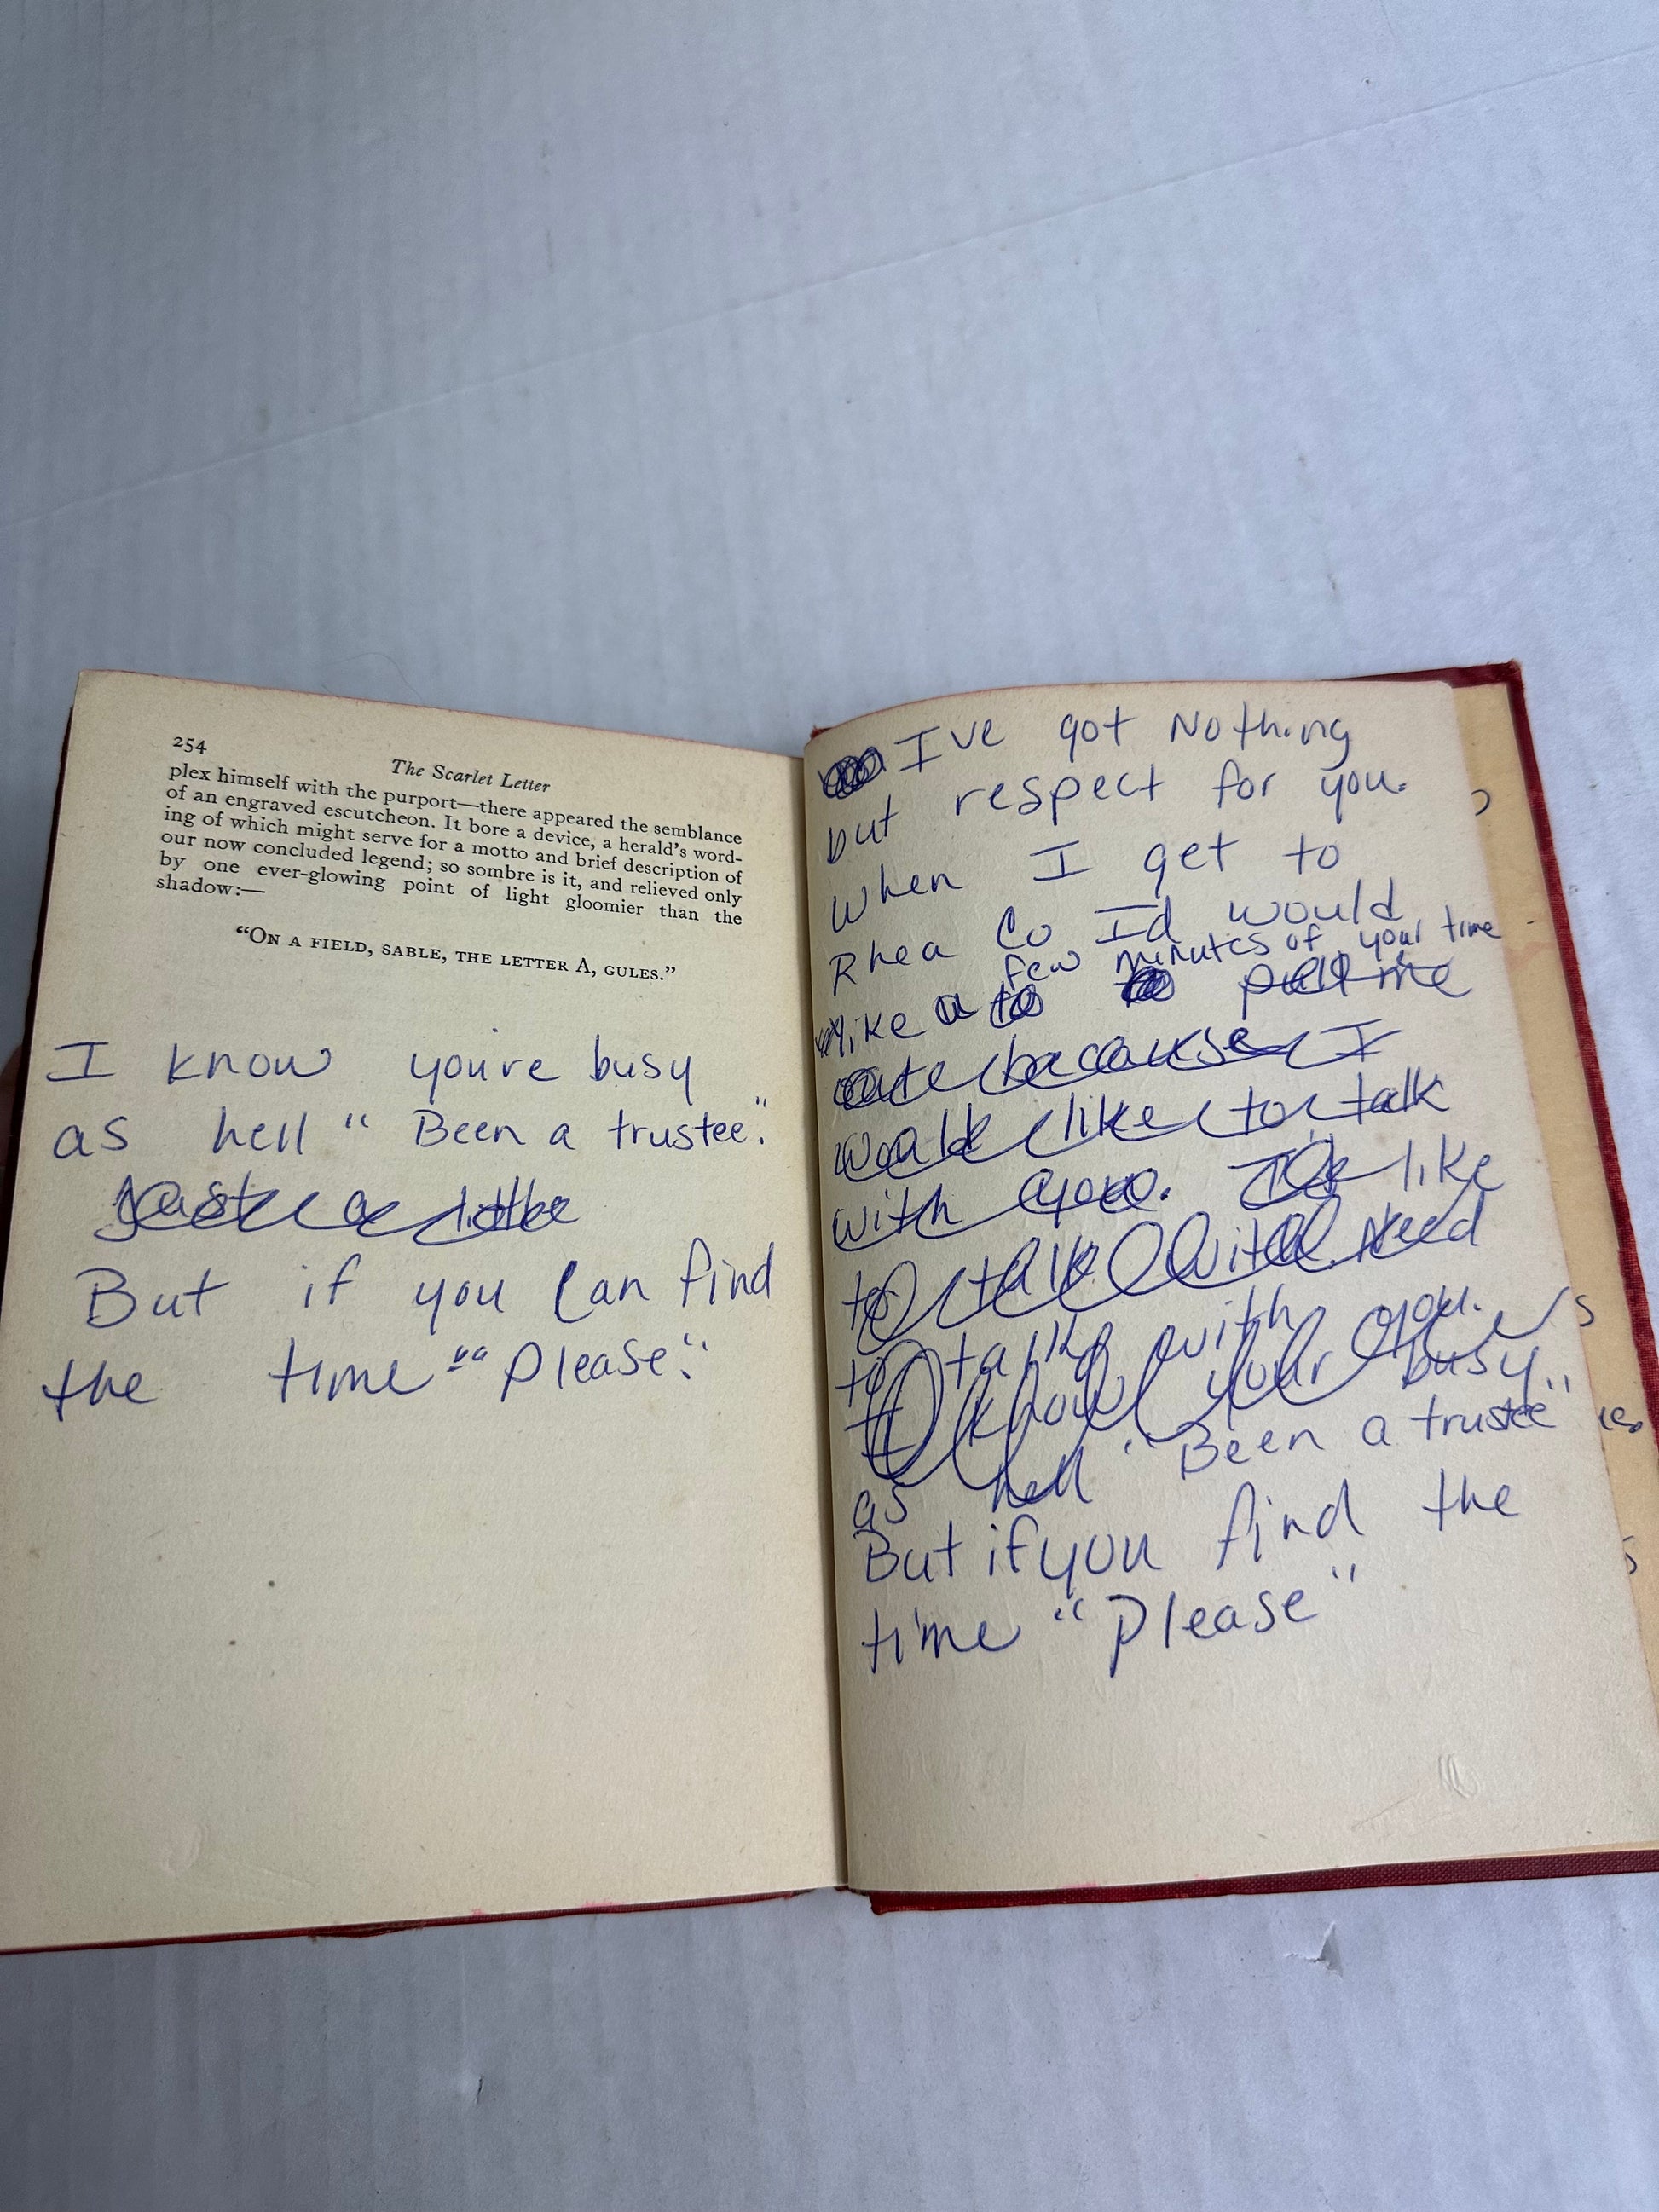 254
The Scarlet Letter
plex himself with the purport—there appeared the semblance
of an engraved escutcheon. It bore a device, a herald's word-
ing of which might serve for a motto and brief description of
our now concluded legend; so sombre is it, and relieved only
by one ever-glowing point of light gloomier than the
shadow:—
"ON A FIELD, SABLE, THE LETTER A, GULES."
I know you're busy
as hell " Been a trustee."
Just a little
But if you can find
the time "" Please"
I've got Nothing
but respect for you.
When I get to
Rhea Co Id would
few minutes of your time
like a to pull me
out because I
would like to talk
with you. I'd like
to talk with need
to talk with you.
I know your busy
as hell " Been a trustee"
But if you find the
time "Please"